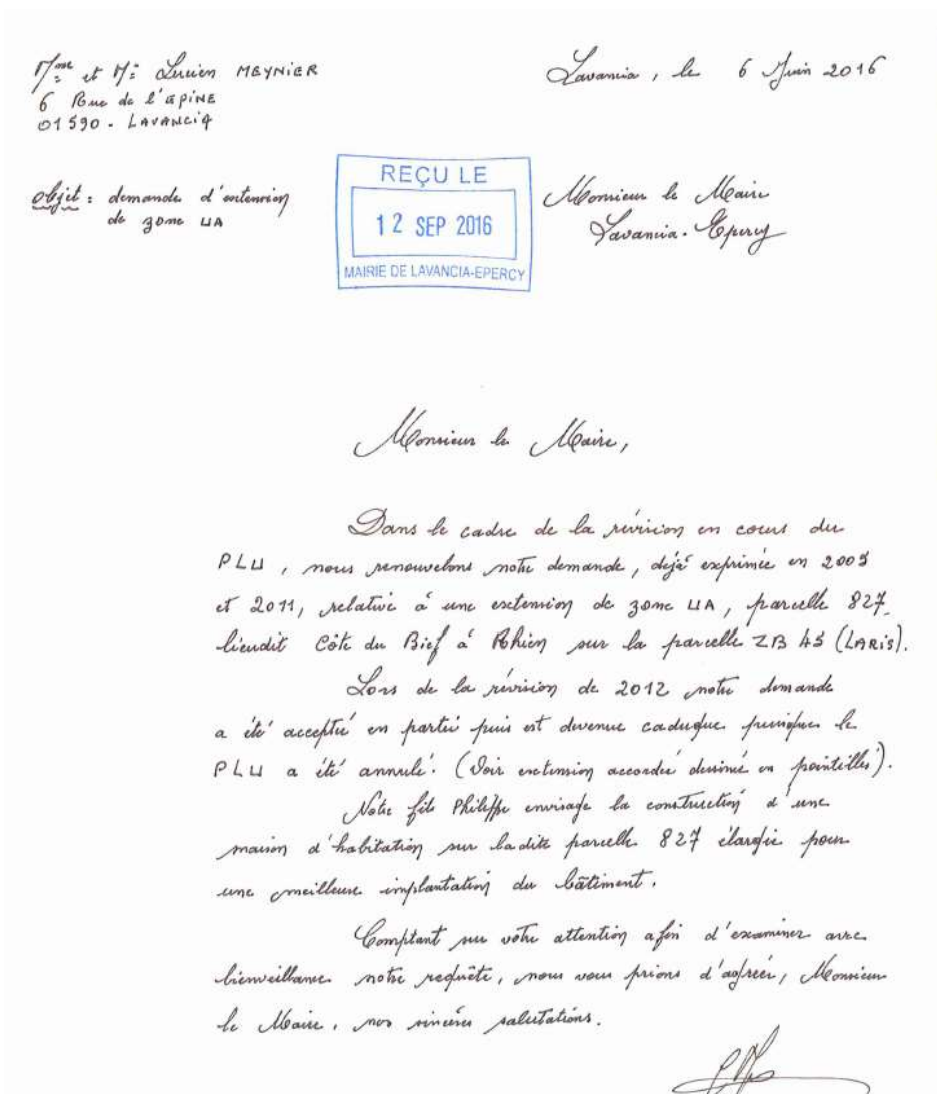 Mme et Mr Lucien MEYNIER
6 Rue de l'EPINE
01590 - LAVANCIA
Lavancia, le 6 Juin 2016
objet : demande d'extension
de zone UA
REÇU LE
12 SEP 2016
MAIRIE DE LAVANCIA-EPERCY
Monsieur le Maire
Lavancia-Epercy
Monsieur le Maire,
Dans le cadre de la révision en cours du
PLU, nous renouvelons notre demande, déjà exprimée en 2005
et 2011, relative à une extension de zone UA, parcelle 827
lieudit Côte du Bief à sur la parcelle ZB 45 (LARIS).
Lors de la révision de 2012 notre demande
a été acceptée en partie puis est devenue caduque puisque le
PLU a été annulé. (Voir extension accordée dessinée en pointillés).
Notre fils Philippe envisage la construction d'une
maison d'habitation sur ladite parcelle 827 élargie pour
une meilleure implantation du bâtiment.
Comptant sur votre attention afin d'examiner avec
bienveillance notre requête, nous vous prions d'agréer, Monsieur
le Maire, nos sincères salutations.